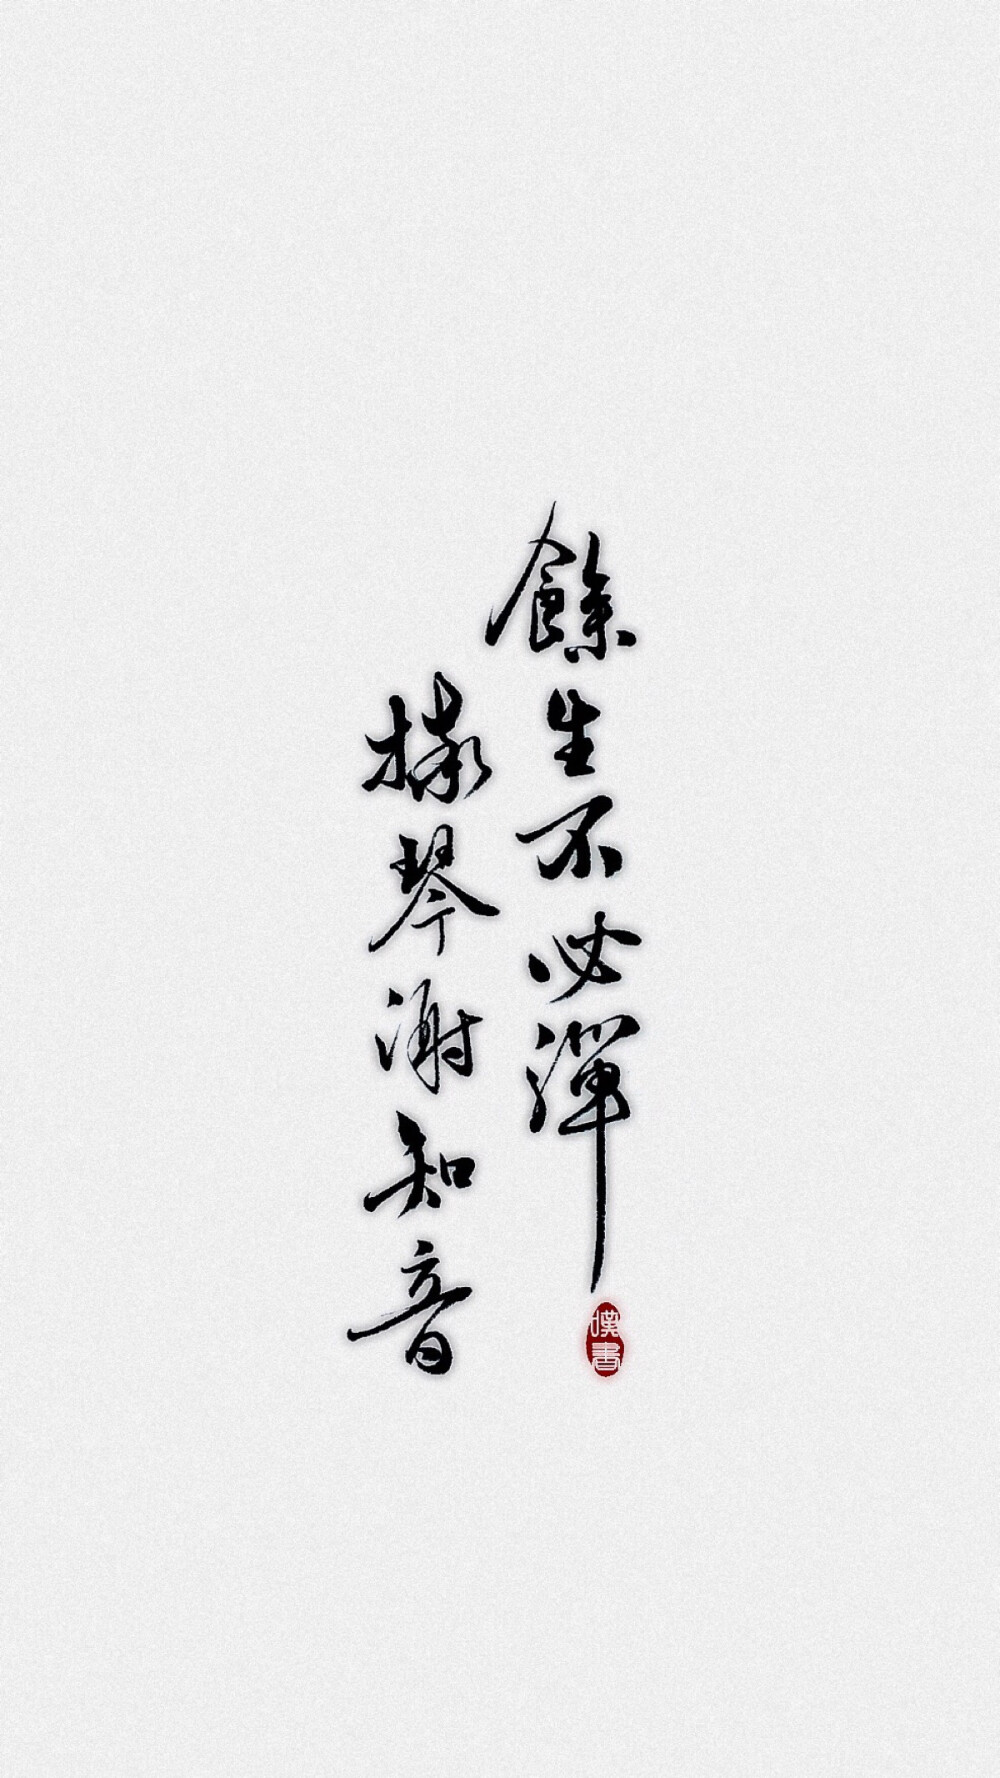 餘生不必彈
琴謝知音
漢書